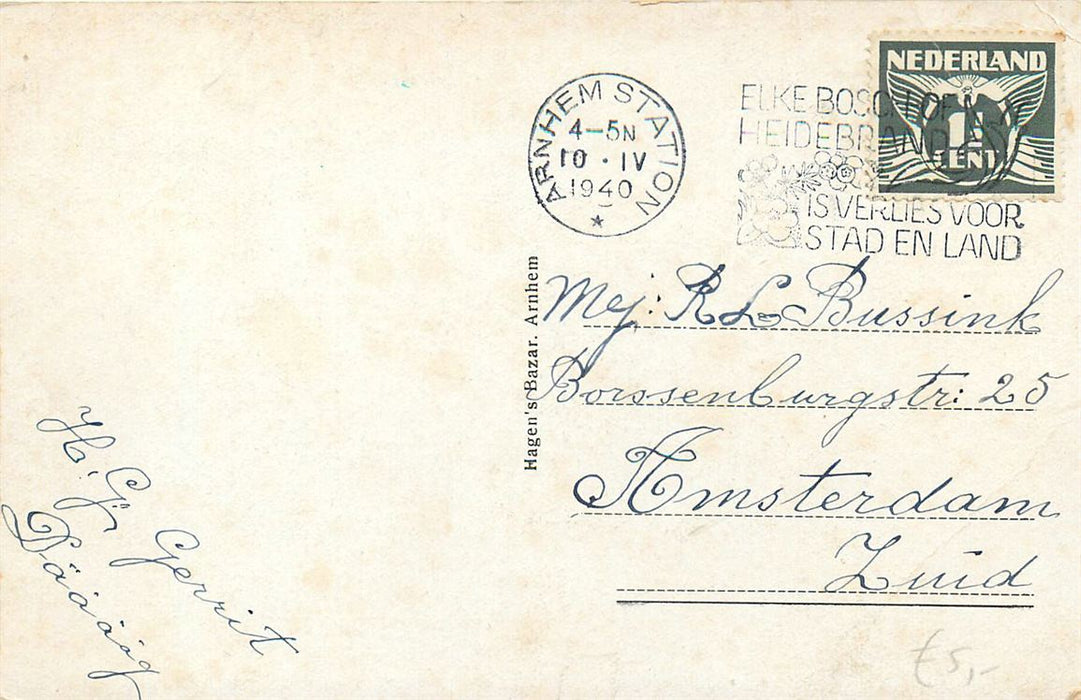 ARNHEM STATION
4-5N
10 · IV
1940
*
ELKE BOSCH OF
HEIDEBRAND
IS VERLIES VOOR
STAD EN LAND
NEDERLAND
1
CENT
Hagen's Bazar. Arnhem
Mej: R L Bussink
Borssenburgstr: 25
Amsterdam
Zuid
H. Gr.
Gerrit
Dáááág
€5,-